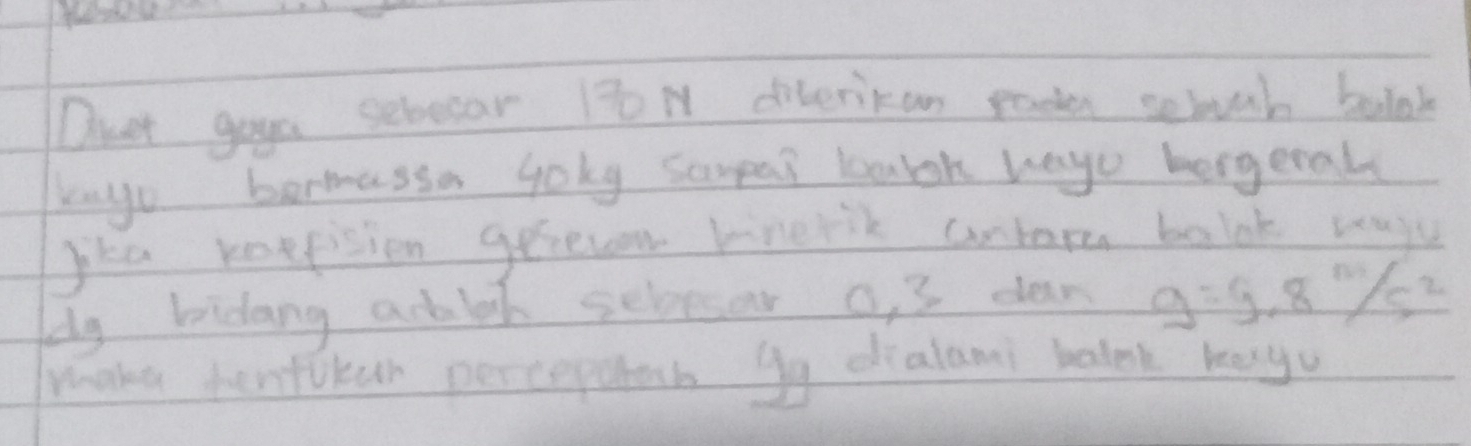 gaya sebesar 170 N diberikan pada sebuah balok
kayu bermassa 40kg sampai balok kayu bergerak
jika koefisien gesekan kinetik antara balok kayu
dg bidang adalah sebesar 0,3 dan g=9,8 m/s²
maka tentukan percepatan yg dialami balok kayu